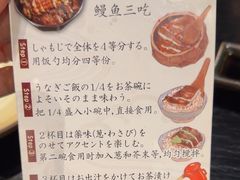 鳗鱼三吃
Step 1
しゃもじで全体を4等分する。
用饭勺均分四等份。
Step 2
うなぎご飯の1/4をお茶碗に
よそいそのまま味わう。
把1/4盛入小碗中,直接食用。
Step 3
2杯目は薬味(葱・わさび)を
のせてアクセントを楽しむ。
第二碗食用时加入葱和芥末等,均匀搅拌。
3杯目はお出汁をかけてお茶漬け